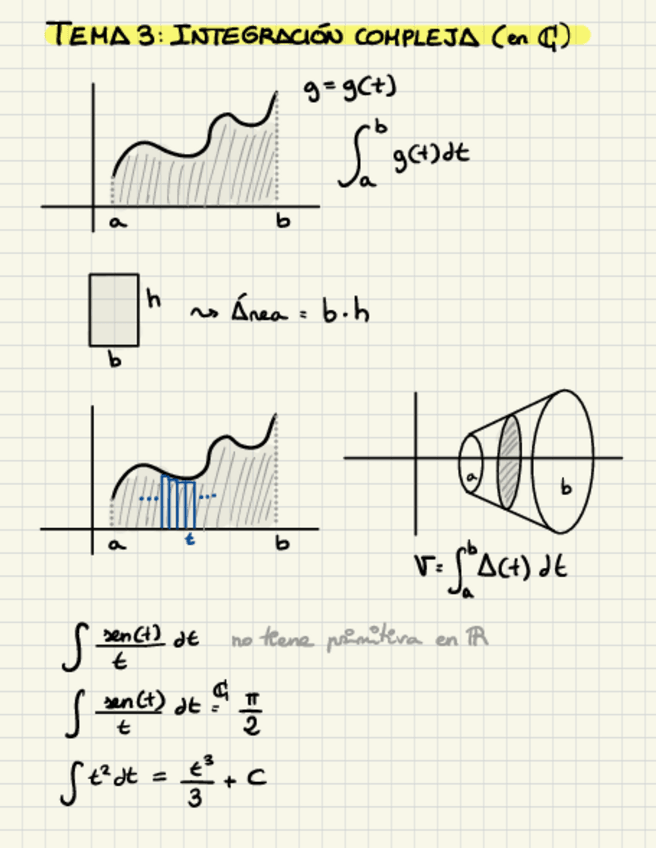 TEMA 3: INTEGRACIÓN COMPLEJA (en ℂ)
g = g(t)
∫_a^b g(t) dt
a b
h
~> Área = b · h
b
... ...
a t b
a b
V = ∫_a^b A(t) dt
∫ sen(t)/t dt no tiene primitiva en ℝ
∫ sen(t)/t dt =^ℂ π/2
∫ t² dt = t³/3 + C